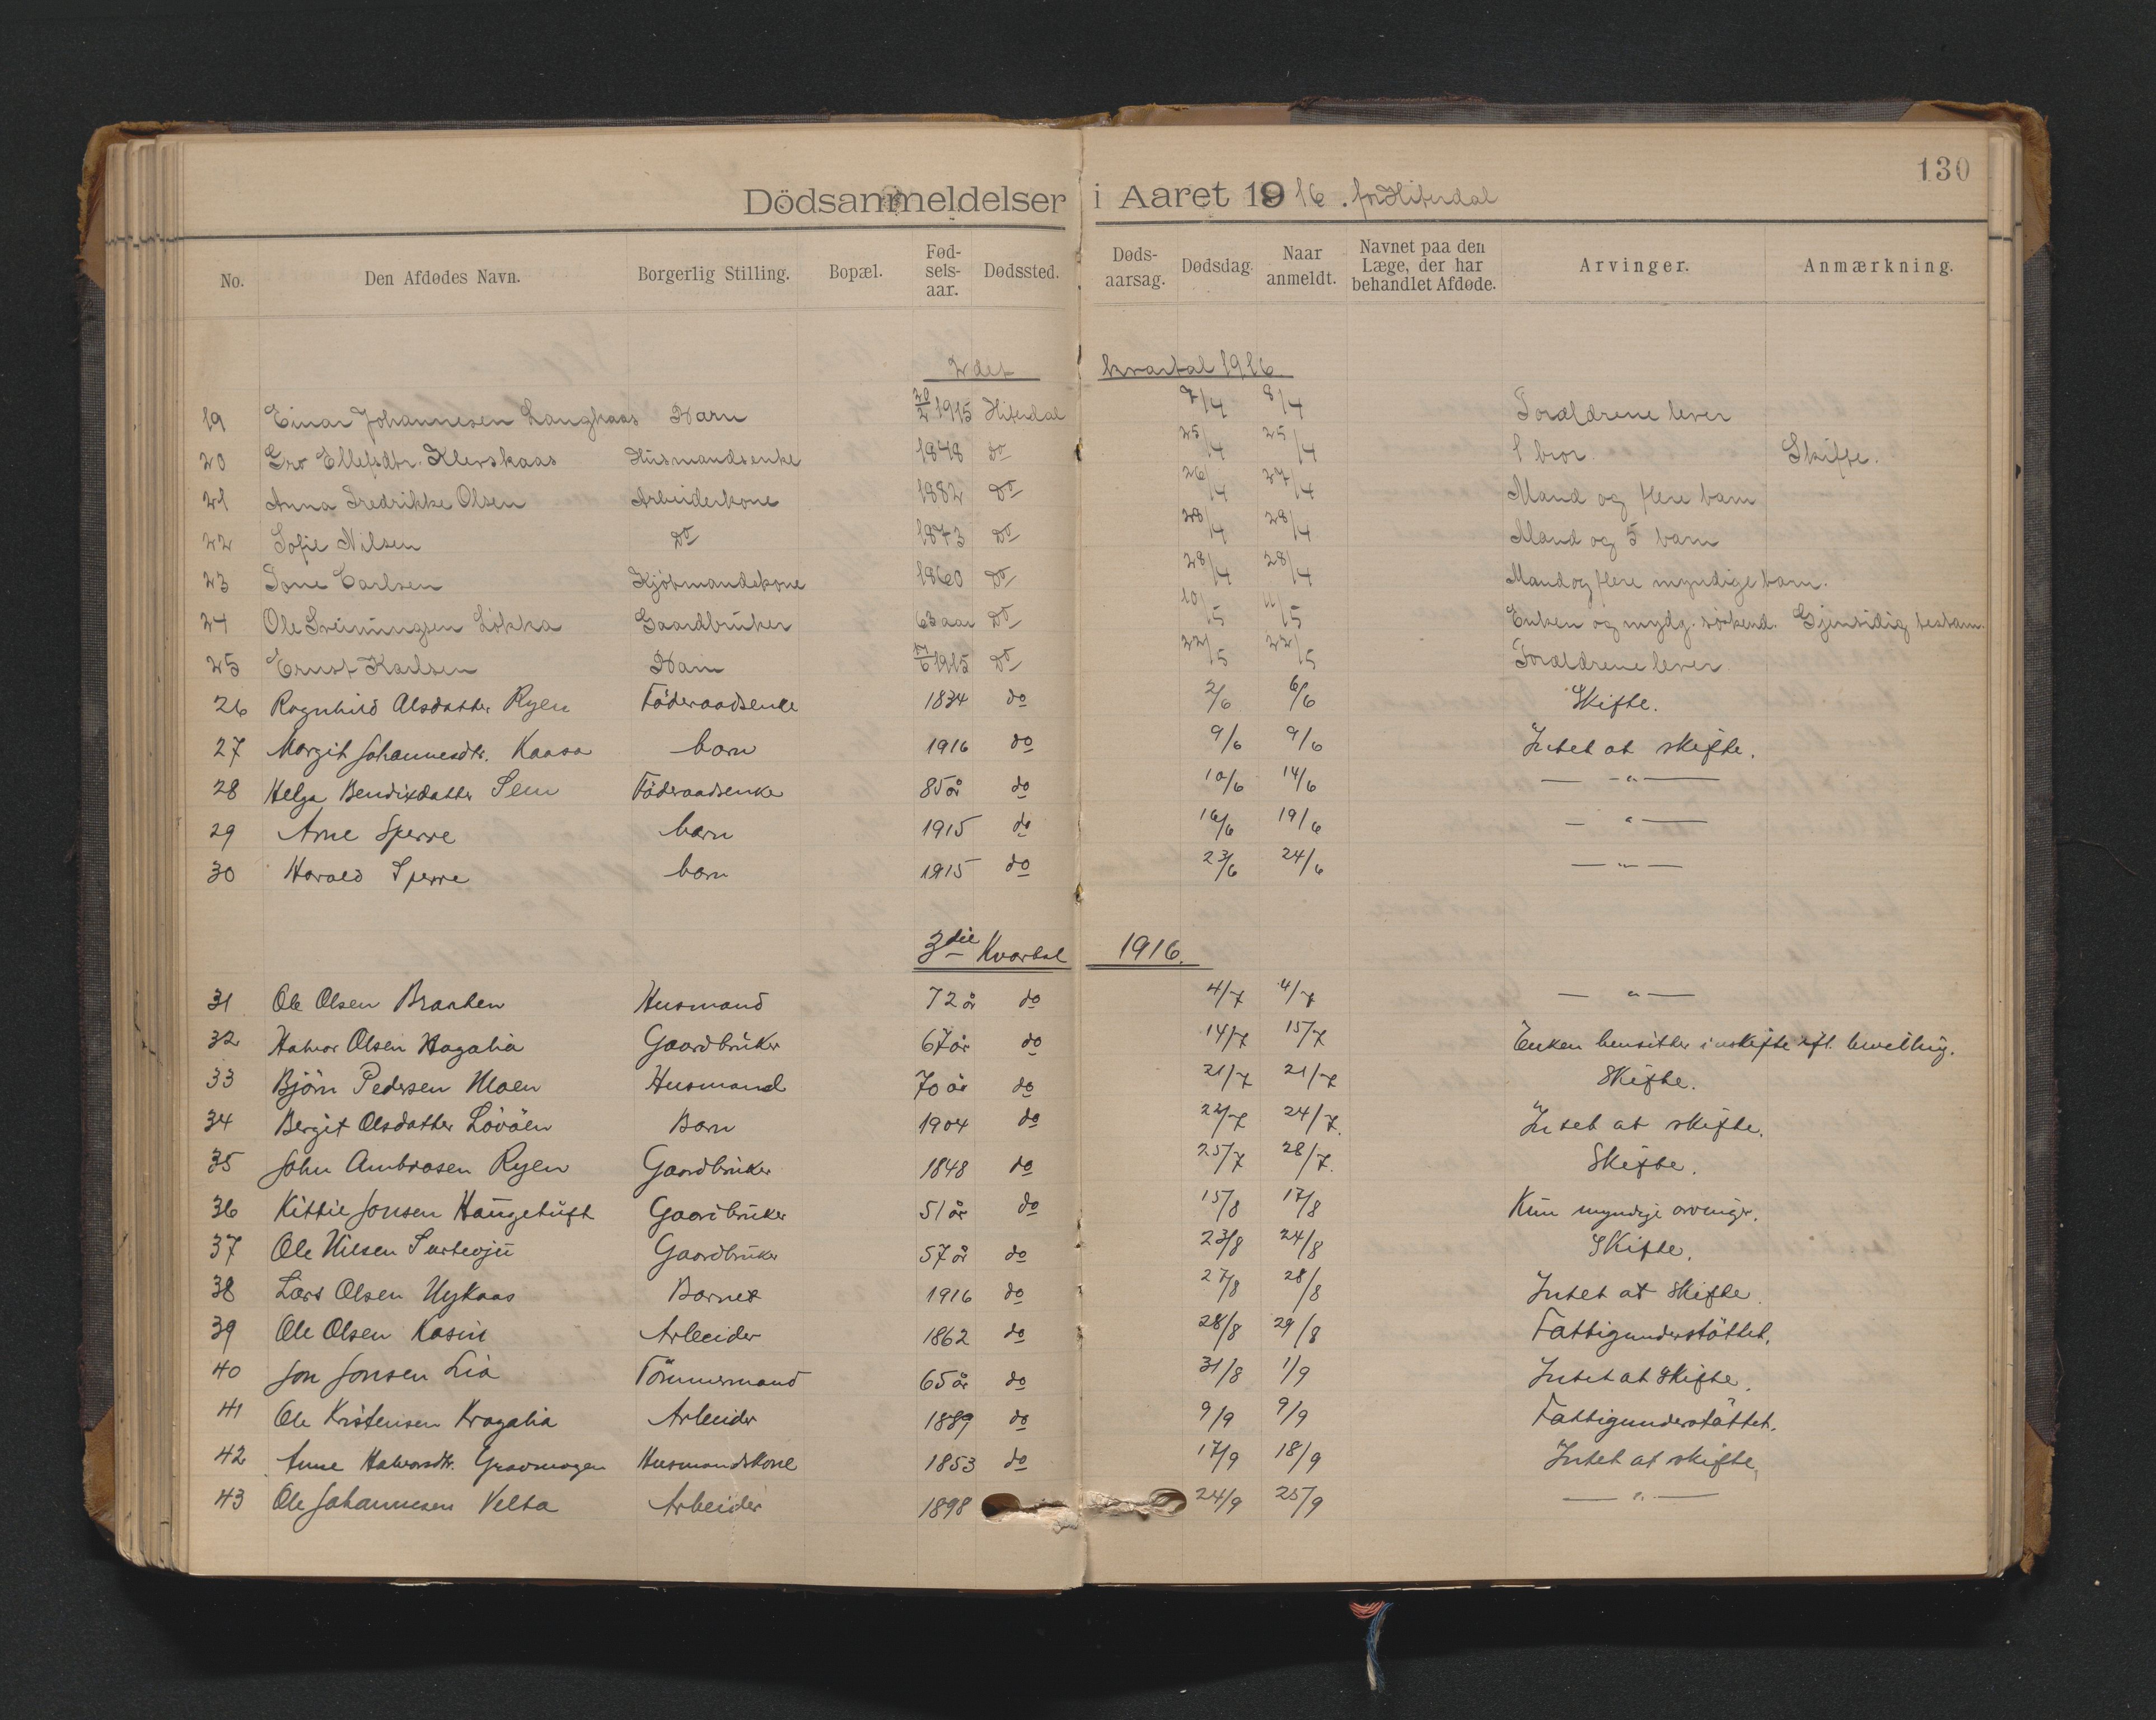 130
Dödsanmeldelser i Aaret 1916. for Hiterdal
No. Den Afdødes Navn. Borgerlig Stilling. Bopæl. Fød-sels-aar. Dødssted. Døds-aarsag. Dødsdag. Naar anmeldt. Navnet paa den Læge, der har behandlet Afdøde. Arvinger. Anmærkning.
2det kvartal 1916
19 Einar Johannesen Langkaas Barn 20/2 1915 Hiterdal 7/4 8/4 Forældrene lever
20 Gro Ellefsdtr. Kleivkaas Husmandsenke 1848 do 25/4 25/4 1 bror. Skifte.
21 Anna Fredrikke Olsen Arbeiderkone 1882 Do 26/4 27/4 Mand og flere barn
22 Sofie Nilsen Do 1873 Do 28/4 28/4 Mand og 5 barn
23 Tone Carlsen Kjöbmandskone 1860 Do 28/4 28/4 Mand og flere myndige barn.
24 Ole Sveinungsen Lökka Gaardbruker 63 aar Do 10/5 11/5 Enken og mydg. söskend. Gjensidig testam.
25 Ernst Karlsen Barn 1915 Do 22/5 22/5 Forældrene lever
26 Ragnhild Olsdatter Ryen Föderaadsenke 1834 do 2/6 6/6 Skifte.
27 Margit Johannesdtr. Kaasa barn 1916 do 9/6 9/6 Intet at skifte.
28 Helga Bendixdatter Sem Föderaadsenke 85 år do 10/6 14/6 — " —
29 Arne Sperre barn 1915 do 16/6 19/6 — " —
30 Harald Sperre barn 1915 do 23/6 24/6 — " —
3die Kvartal 1916.
31 Ole Olsen Braaten Husmand 72 år do 4/7 4/7 — " —
32 Halvor Olsen Hagalia Gaardbruker 67 år do 14/7 15/7 Enken hensitter i uskifte eft. bevilling.
33 Björn Pedersen Moen Husmand 70 år do 21/7 21/7 Skifte.
34 Bergit Olsdatter Lövöen Barn 1904 do 22/7 24/7. Intet at skifte.
35 John Ambrosen Ryen Gaardbruker 1848 do 25/7 28/7. Skifte.
36 Kittil Jonsen Haugetuft Gaardbruker 51 år do 15/8 17/8 Kun myndige arvinger.
37 Ole Nilsen Gaardbruker 57 år do 23/8 24/8 Skifte.
38 Lars Olsen Nykaas Barnet 1916 do 27/8 28/8 Intet at skifte.
39 Ole Olsen Kasin Arbeider 1862 do 28/8 29/8 Fattigunderstöttet.
40 Jon Jonsen Lia Tömmermand 65 år do 31/8 1/9 Intet at skifte.
41 Ole Kristensen Kragalia Arbeider 1889 do 9/9 9/9 Fattigunderstöttet.
42 Anne Halvorsdtr. Husmandskone 1853 do 17/9 18/9 Intet at skifte.
43 Ole Johannesen Velta Arbeider 1898 24/9 25/9 — " —